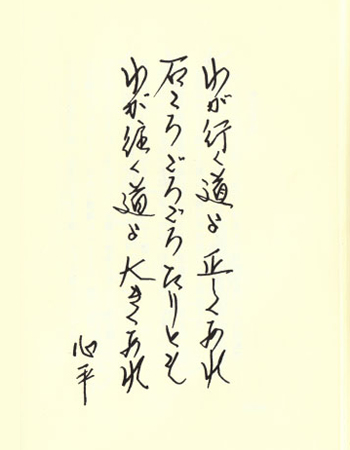 わが行く道よ 正しくあれ
石ころごろごろたりとも
わが往く道よ 大きくあれ
心平